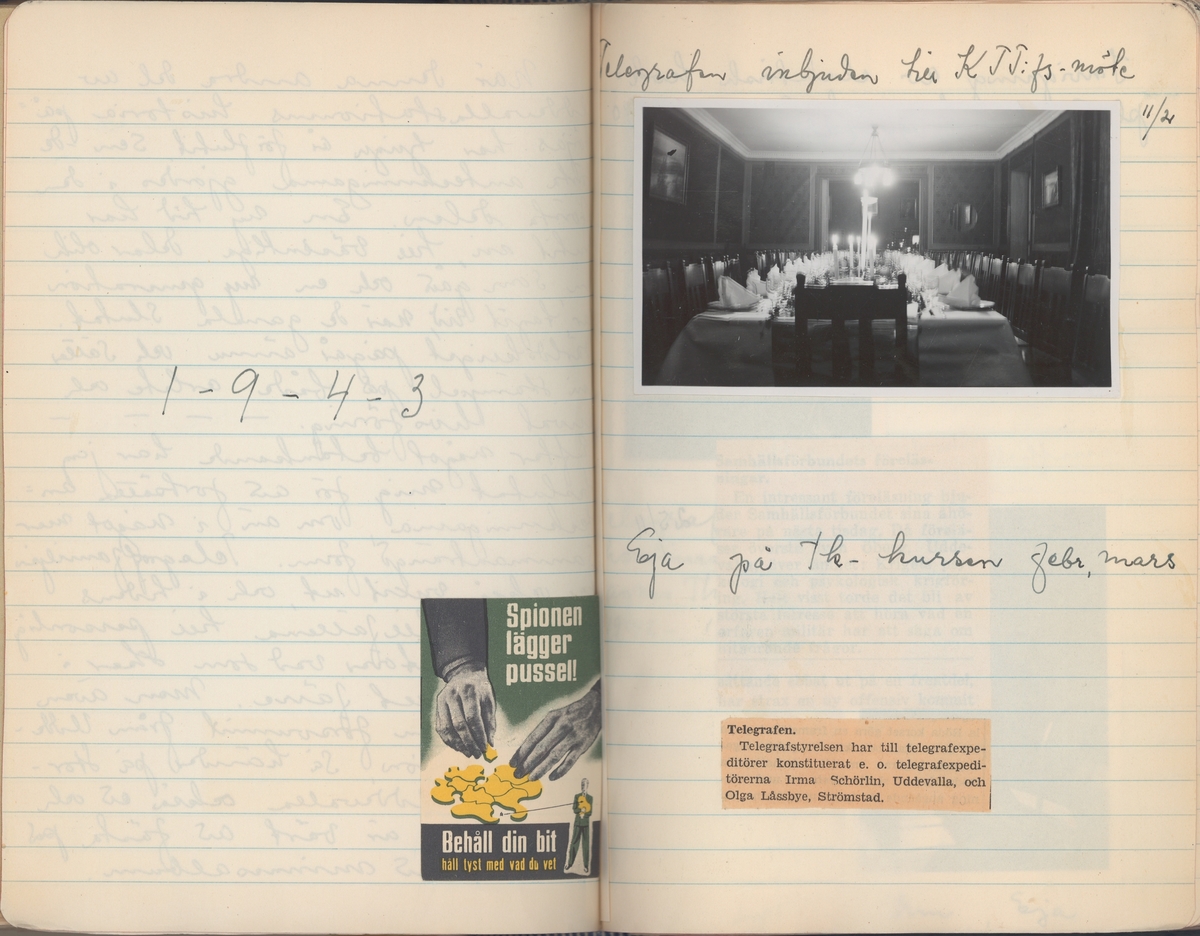 1-9-4-3
Spionen
lägger
pussel!
Behåll din bit
håll tyst med vad du vet
Telegrafen inbjuden till KTT:fs-möte
11/2
Eja på Tk-kursen febr, mars
Telegrafen.
Telegrafstyrelsen har till telegrafexpe-
ditörer konstituerat e. o. telegrafexpedi-
törerna Irma Schörlin, Uddevalla, och
Olga Låssbye, Strömstad.